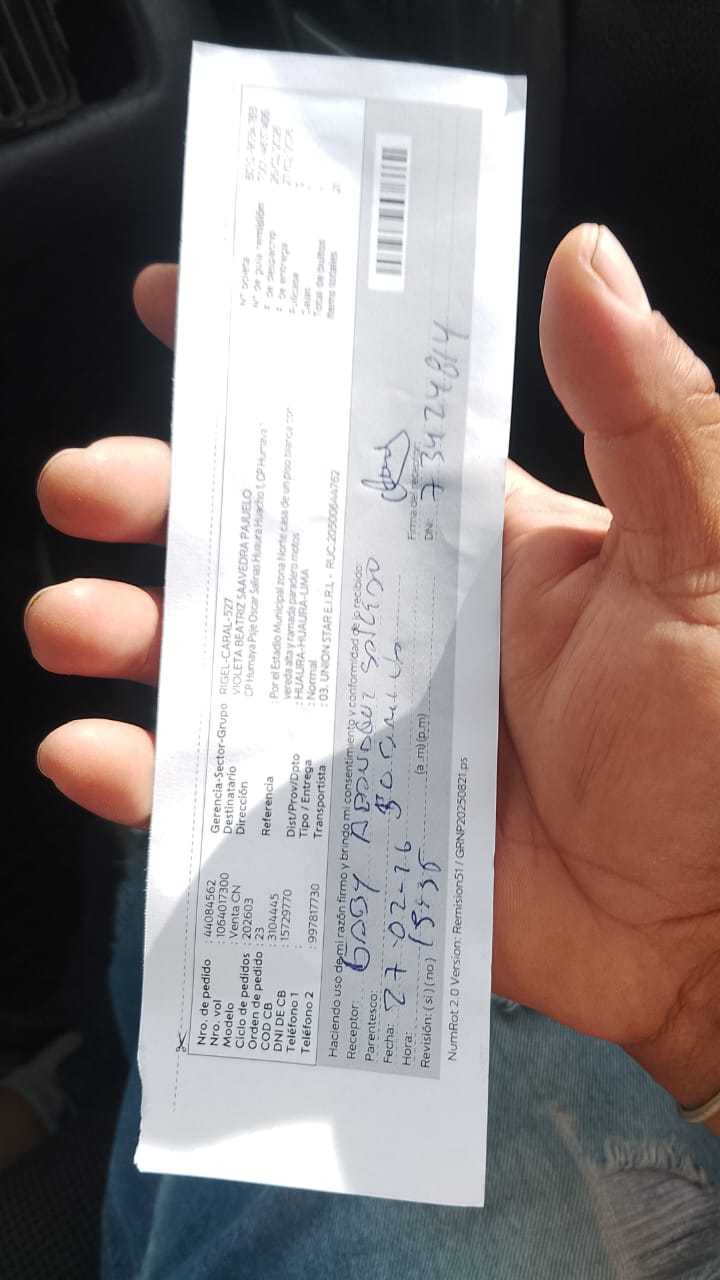 Nro. de pedido : 44084562
Nro. vol : 1064017300
Modelo : Venta CN
Ciclo de pedidos : 202603
Orden de pedido : 23
COD CB : 3104445
DNI DE CB : 15729770
Teléfono 1 :
Teléfono 2 : 997817730
Gerencia-Sector-Grupo RIGEL-CARAL-527
Destinatario VIOLETA BEATRIZ SAAVEDRA PAJUELO
Dirección CP Humaya Psje Oscar Salinas Huaura Huacho 1, CP Humaya
Referencia Por el Estadio Municipal zona Norte casa de un piso blanca con
vereda alta y ramada paradero motos
Dist/Prov/Dpto : HUAURA-HUAURA-LIMA
Tipo / Entrega : Normal
Transportista : 03. UNION STAR E.I.R.L - RUC:20500644762
N° boleta
N° de guía remisión
F. de despacho
F. de entrega
Total de bultos
Items totales 21
Haciendo uso de mi razón firmo y brindo mi consentimiento y conformidad de lo recibido:
Receptor: GABY
Parentesco:
Fecha: 27-02-26
Hora: (a.m)(p.m)
Revisión: (si) (no)
Firma de receptor:
DNI: 73424814
NumRot 2.0 Version: Remision51 / GRNP20250821.ps